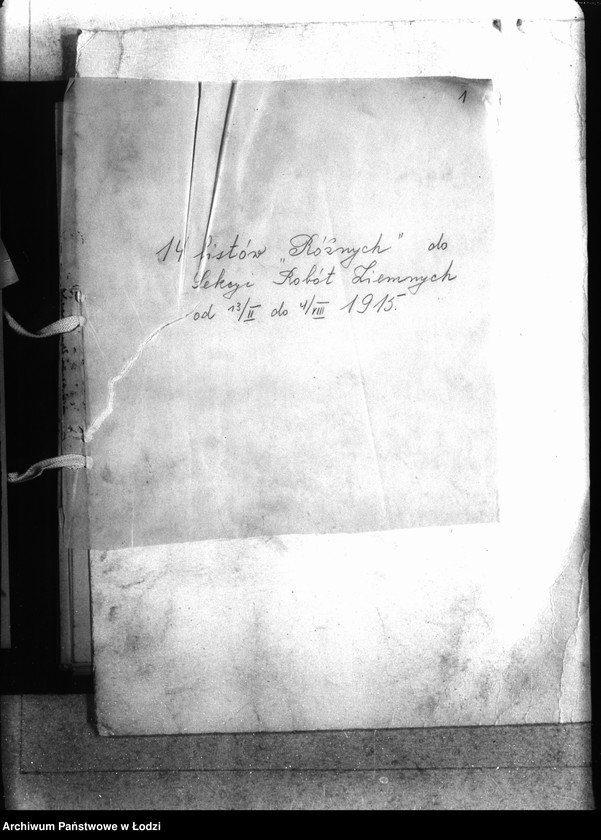 1
14 listów „Różnych" do
Sekcyi Robót Ziemnych
od 13/II do 4/VIII 1915.
Archiwum Państwowe w Łodzi